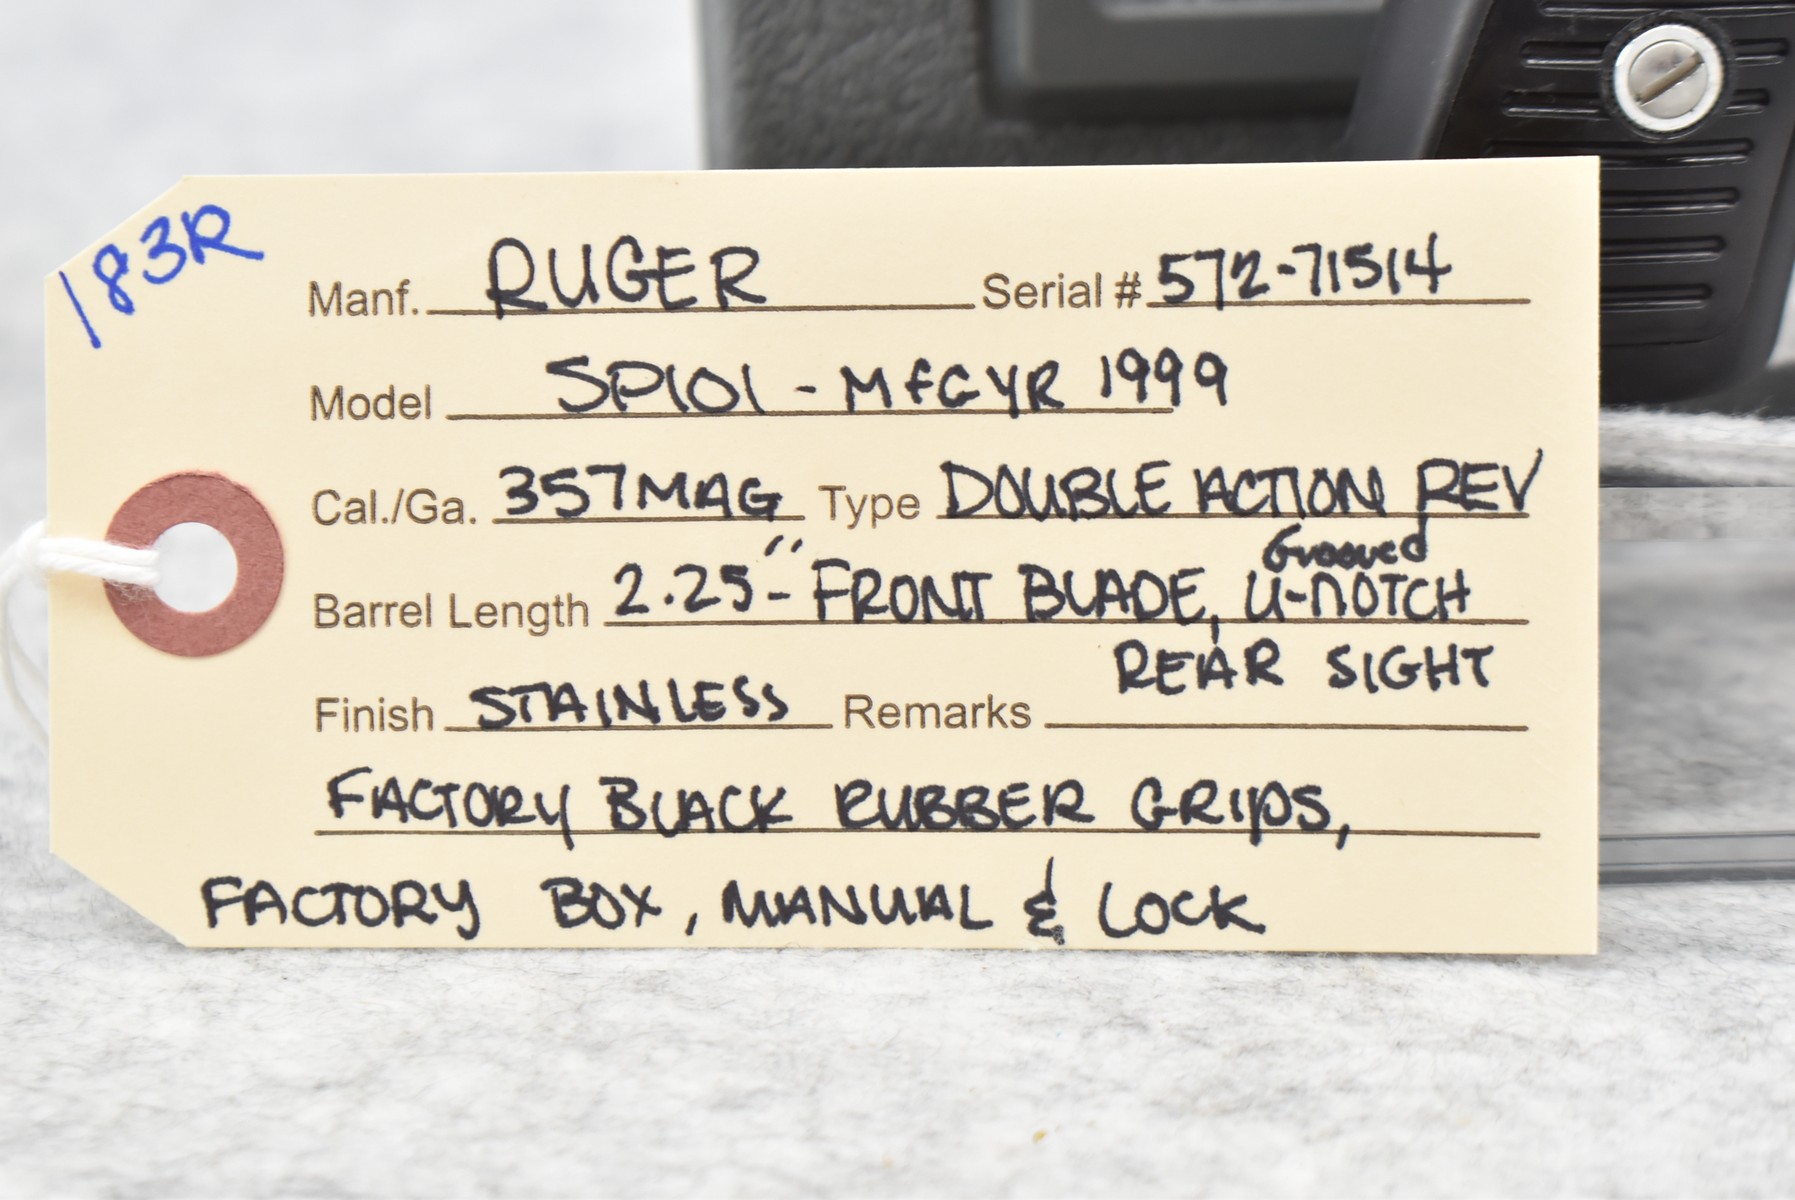 183R
Manf. RUGER Serial # 572-71514
Model SP101 - MFG YR 1999
Cal./Ga. 357 MAG Type DOUBLE ACTION REV
Grooved
Barrel Length 2.25" - FRONT BLADE, U-NOTCH
REAR SIGHT
Finish STAINLESS Remarks
FACTORY BLACK RUBBER GRIPS,
FACTORY BOX, MANUAL & LOCK